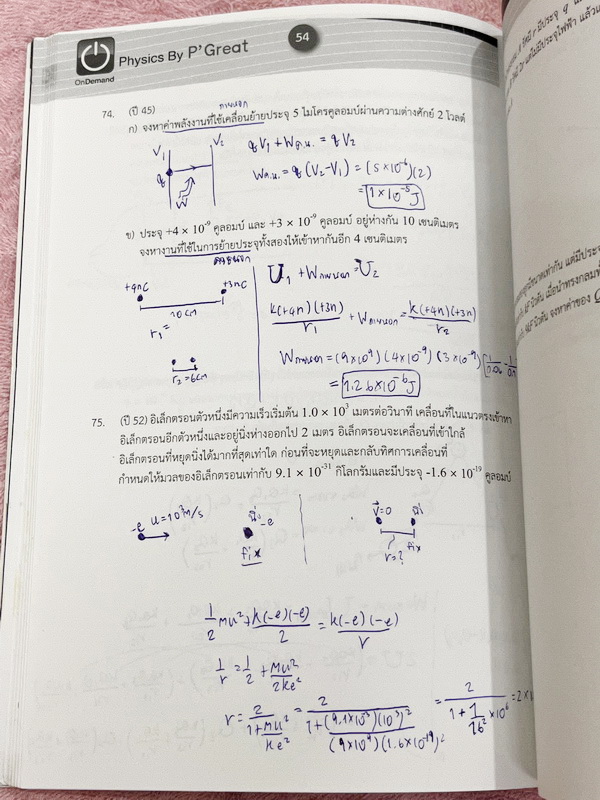 OnDemand
Physics By P'Great
54
74. (ปี 45)
ภายนอก
ก) จงหาค่าพลังงานที่ใช้เคลื่อนย้ายประจุ 5 ไมโครคูลอมบ์ผ่านความต่างศักย์ 2 โวลต์
V₁ V₂
q
W
qV₁ + Wภ.น. = qV₂
Wภ.น. = q(V₂-V₁) = (5×10⁻⁶)(2)
= 1×10⁻⁵J
ข) ประจุ +4 × 10⁻⁹ คูลอมบ์ และ +3 × 10⁻⁹ คูลอมบ์ อยู่ห่างกัน 10 เซนติเมตร
จงหางานที่ใช้ในการย้ายประจุทั้งสองให้เข้าหากันอีก 4 เซนติเมตร
ภายนอก
+4nC +3nC
10cm
r₁=
r₂=6cm
U₁ + Wภายนอก = U₂
k(+4n)(+3n)/r₁ + Wภายนอก = k(+4n)(+3n)/r₂
Wภายนอก = (9×10⁹)(4×10⁻⁹)(3×10⁻⁹)[1/0.06 - 1/0.1
= 1.26×10⁻⁶J
75. (ปี 52) อิเล็กตรอนตัวหนึ่งมีความเร็วเริ่มต้น 1.0 × 10³ เมตรต่อวินาที เคลื่อนที่ในแนวตรงเข้าหา
อิเล็กตรอนอีกตัวหนึ่งและอยู่นิ่งห่างออกไป 2 เมตร อิเล็กตรอนจะเคลื่อนที่เข้าใกล้
อิเล็กตรอนที่หยุดนิ่งได้มากที่สุดเท่าใด ก่อนที่จะหยุดและกลับทิศการเคลื่อนที่
กำหนดให้มวลของอิเล็กตรอนเท่ากับ 9.1 × 10⁻³¹ กิโลกรัมและมีประจุ -1.6 × 10⁻¹⁹ คูลอมบ์
-e u=10³m/s
นิ่ง -e
fix
v=0 นิ่ง
r=? fix
1/2 mu² + k(-e)(-e)/2 = k(-e)(-e)/r
1/r = 1/2 + mu²/2ke²
r = 2/(1+mu²/ke²) = 2/(1+(9.1×10⁻³¹)(10³)²/(9×10⁹)(1.6×10⁻¹⁹)²) = 2/(1+1/16²×10⁶) = 2×1